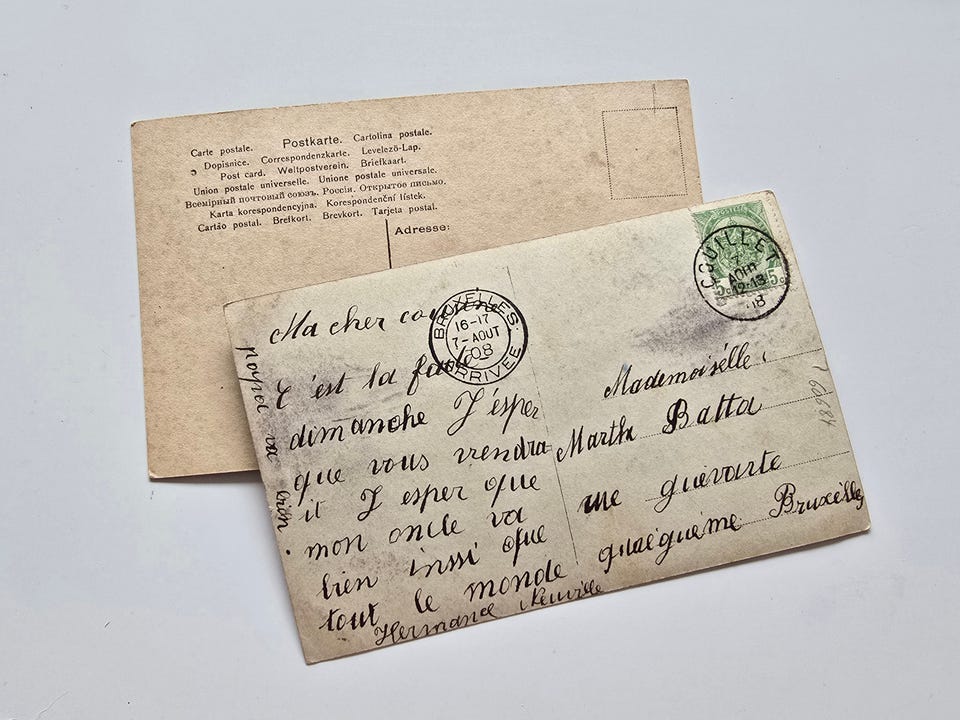 Carte postale. Postkarte. Cartolina postale.
Dopisnice. Correspondenzkarte. Levelező-Lap.
Post card. Weltpostverein. Briefkaart.
Union postale universelle. Unione postale universale.
Всемірный почтовый союзъ. Россія. Открытое письмо.
Karta korespondencyjna. Korespondenční lístek.
Cartão postal. Brefkort. Brevkort. Tarjeta postal.
Adresse:
POSTES
5c 5c
COUILLET
7
AOUT
12-13
BRUXELLES
16-17
7-AOUT
08
ARRIVÉE
Ma cher
C'est la
dimanche J'ésper
que vous vrendra
it J esper que
mon oncle va
bien inssi que
tout le monde
Hermance Neuville
va bien
Mademoisélle
Marthe Batta
rue
Bruxelles
60684